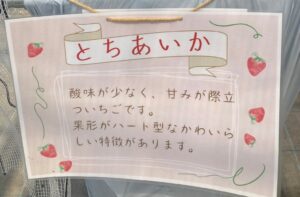 とちあいか
酸味が少なく、甘みが際立
ついちごです。
果形がハート型なかわいら
しい特徴があります。